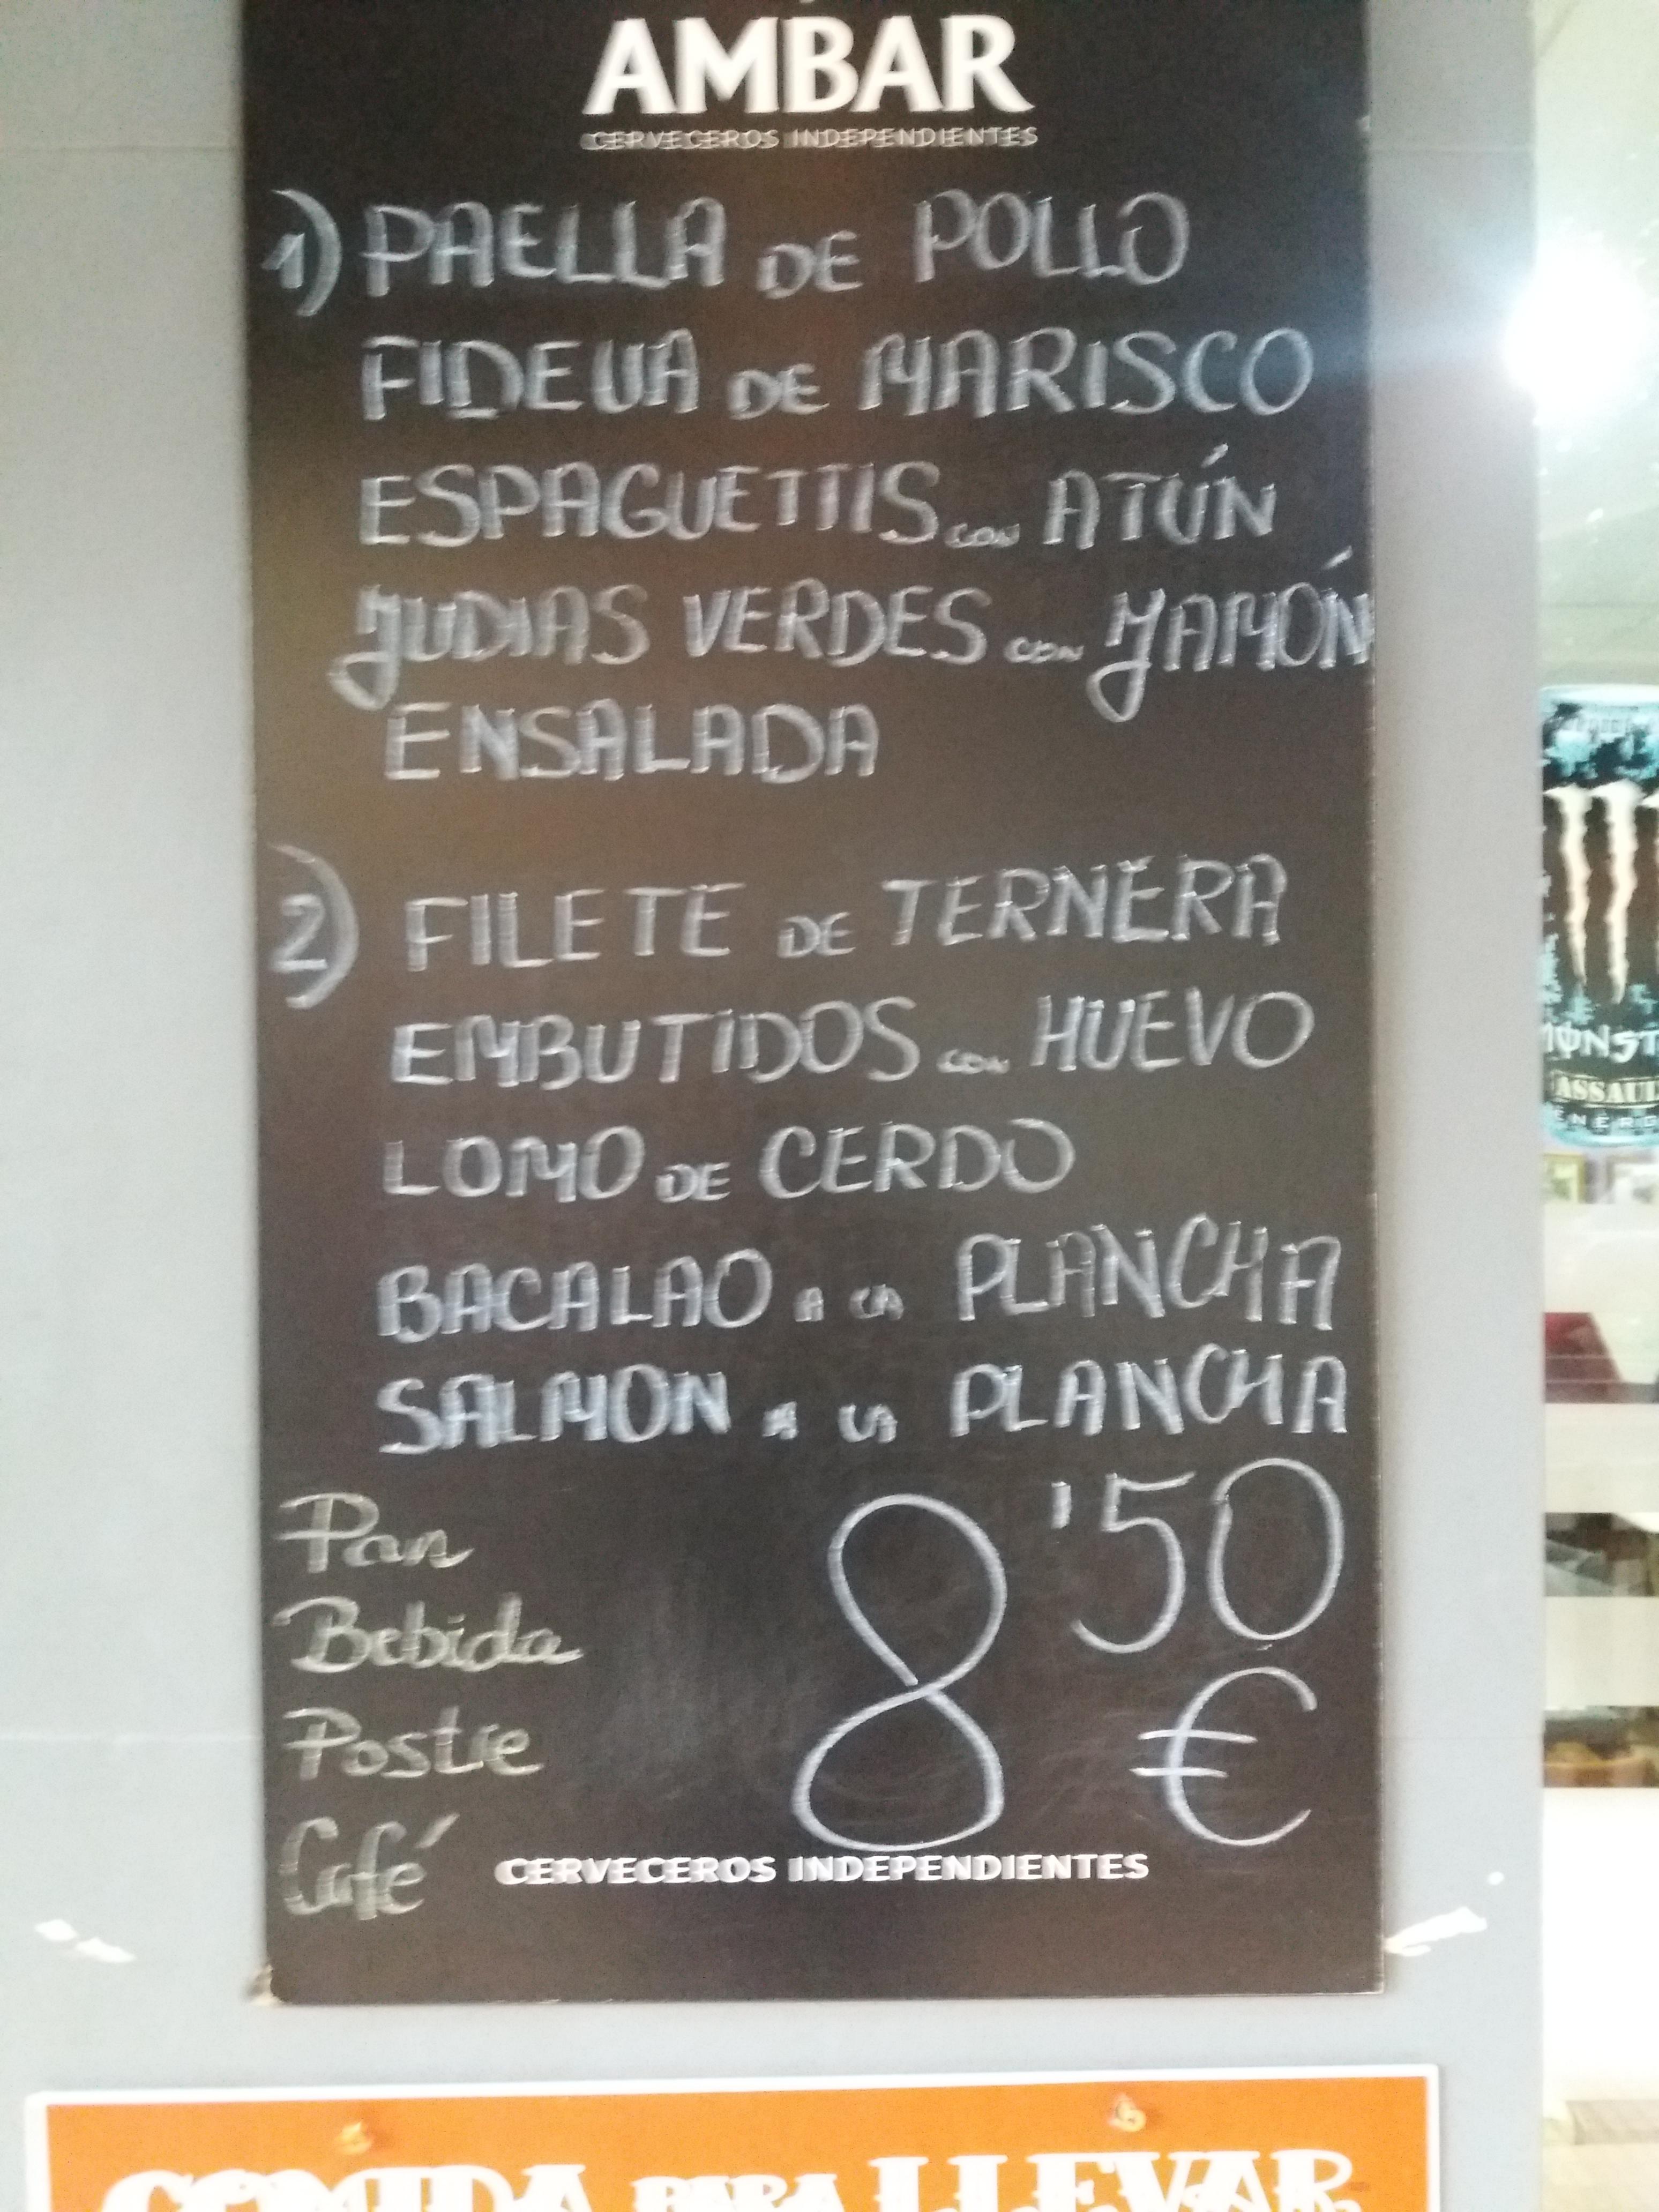 AMBAR
CERVECEROS INDEPENDIENTES
1) PAELLA DE POLLO
FIDEUA DE MARISCO
ESPAGUETTIS CON ATÚN
JUDIAS VERDES CON JAMÓN
ENSALADA
2) FILETE DE TERNERA
EMBUTIDOS CON HUEVO
LOMO DE CERDO
BACALAO A LA PLANCHA
SALMON A LA PLANCHA
Pan
Bebida
Postre
Café
8'50
€
CERVECEROS INDEPENDIENTES
COMIDA PARA LLEVAR
MONST
ASSAUL
ENERG